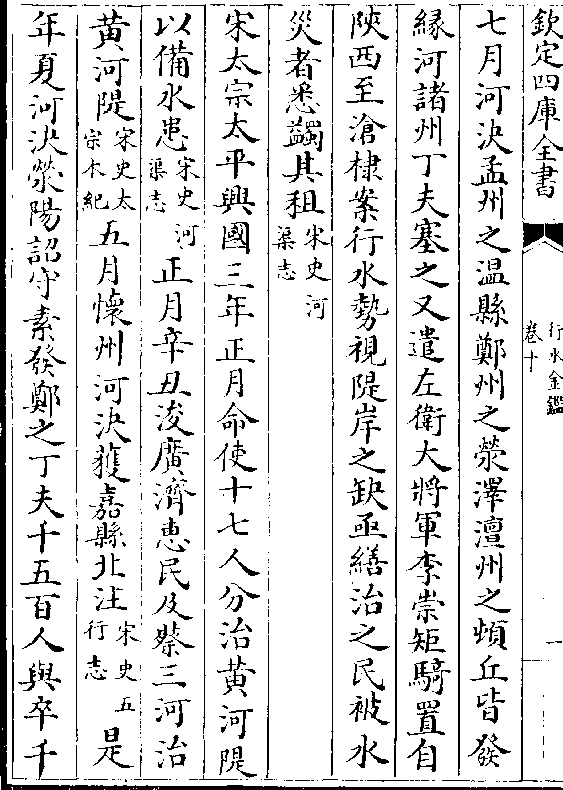 欽定四庫全書
行水金鑑
卷十
一
七月河決孟州之温縣鄭州之滎澤澶州之頓丘皆發
縁河諸州丁夫塞之又遣左衛大將軍李崇矩騎置自
陝西至滄棣案行水勢視隄岸之缺亟繕治之民被水
災者悉蠲其租宋史河渠志
宋太宗太平興國三年正月命使十七人分治黄河隄
以備水患宋史河渠志正月辛丑浚廣濟惠民及蔡三河治
黄河隄宋史太宗本紀五月懷州河決獲嘉縣北注宋史五行志是
年夏河決滎陽詔守素發鄭之丁夫千五百人與卒千